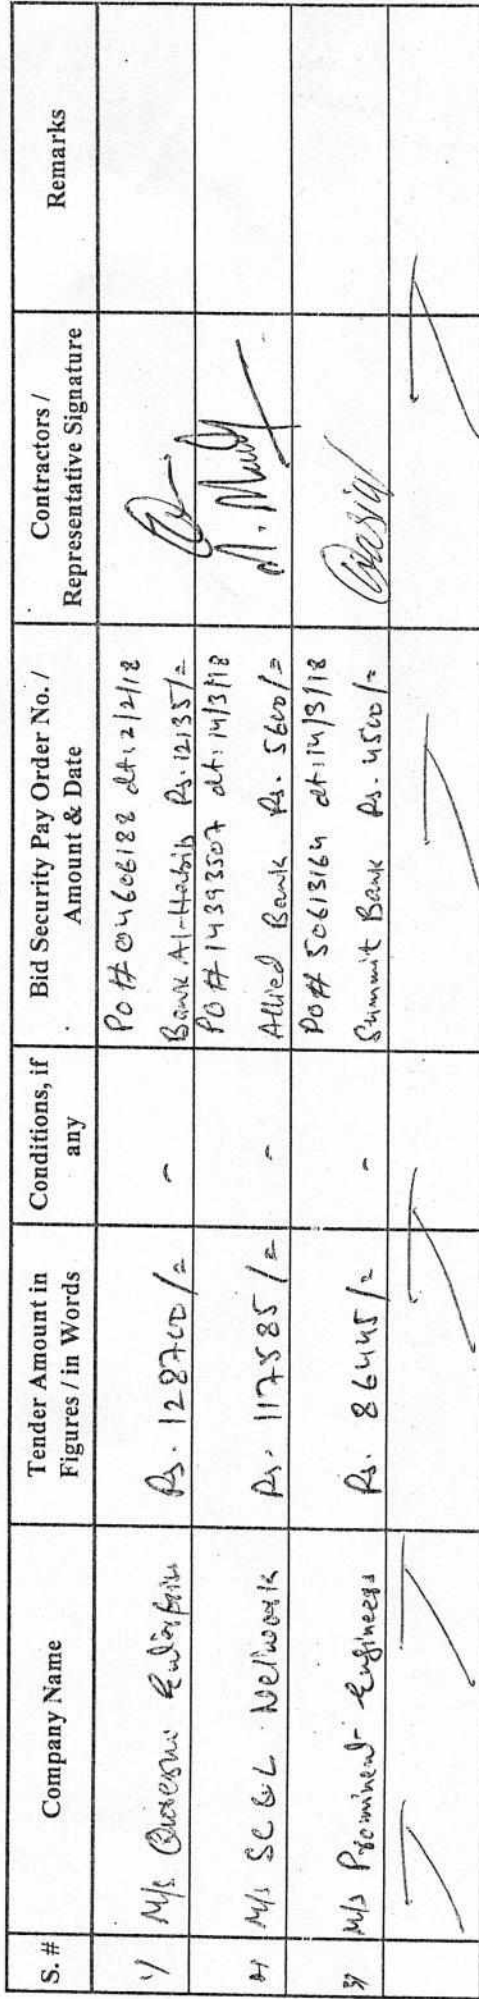 S. #
Company Name
Tender Amount in
Figures / in Words
Conditions, if
any
Bid Security Pay Order No. /
Amount & Date
Contractors /
Representative Signature
Remarks
1/
M/s Qureshi Enterprise
Rs. 128700/=
-
PO# 04606188 dt: 2/2/18
Bank Al-Habib Rs. 12135/=
2/
M/s SC & L Network
Rs. 117585/=
-
PO# 14393507 dt: 14/3/18
Allied Bank Rs. 5600/=
3/
M/s Prominent Engineers
Rs. 86445/=
-
PO# 50613164 dt: 14/3/18
Summit Bank Rs. 4500/=